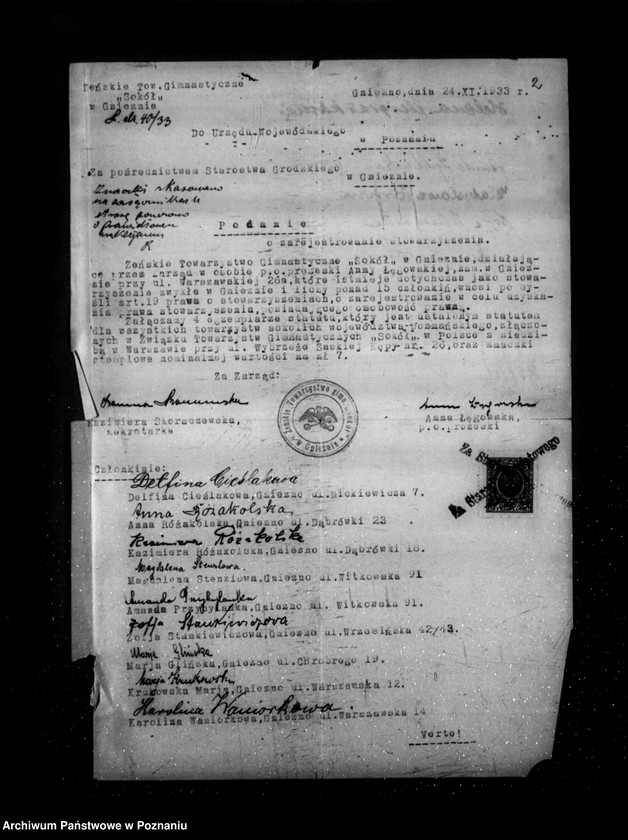 Żeńskie Tow. Gimnastyczne
„Sokół"
w Gnieźnie
Gniezno, dnia 24.XI.1933 r.
2
L. dz. 40/33
Do Urzędu Wojewódzkiego
w Poznaniu
Za pośrednictwem Starostwa Grodzkiego
w Gnieźnie.
Znaczki skasowano
P o d a n i e
o zarejestrowanie stowarzyszenia.
Żeńskie Towarzystwo Gimnastyczne „Sokół" w Gnieźnie, działają-
ce przez zarząd w osobie p.o. prezeski Anny Łęgowskiej, zam. w Gnieź-
nie przy ul. Warszawskiej 26a, które istnieje dotychczas jako stowa-
rzyszenie zwykłe w Gnieźnie i liczy ponad 15 członkiń, wnosi po my-
śli art.19 prawa o stowarzyszeniach, o zarejestrowanie w celu uzyska-
nia prawa stowarzyszenia, posiadającego osobowość prawną.
Załączamy 4 egzemplarze statutu, który jest ustalonym statutem
dla wszystkich towarzystw sokolich województwa Poznańskiego, złączo-
nych w Związku Towarzystw Gimnastycznych „Sokół" w Polsce z siedzi-
bą w Warszawie przy ul. Wybrzeże Saskiej Kępy nr. 26, oraz znaczki
stemplowe nominalnej wartości na zł 7.
Za Zarząd:
Kazimiera Skoraczewska,
sekretarka
Żeńskie Towarzystwo gimn. Sokół
w Gnieźnie
Anna Łęgowska,
p.o. prezeski
Za Star
Członkinie:
Delfina Cieślakowa
Delfina Cieślakowa, Gniezno ul. Mickiewicza 7.
Anna Różakolska
Anna Różakolska, Gniezno ul. Dąbrówki 23
Kazimiera Różakolska
Kazimiera Różakolska, Gniezno ul. Dąbrówki 18.
Magdalena Stenzlowa.
Magdalena Stenzlowa, Gniezno ul. Witkowska 91
Amanda Przybylanka
Amanda Przybylanka, Gniezno ul. Witkowska 91.
Zofja Stankiewiczowa
Zofja Stankiewiczowa, Gniezno ul. Wrzesińska 42/43.
Marja Glińska
Marja Glińska, Gniezno ul. Chrobrego 19.
Marja Krukowska
Krukowska Marja, Gniezno ul. Warszawska 12.
Karolina Waniorkowa.
Karolina Waniorkowa, Gniezno ul. Warszawska 14
Verte!
Archiwum Państwowe w Poznaniu